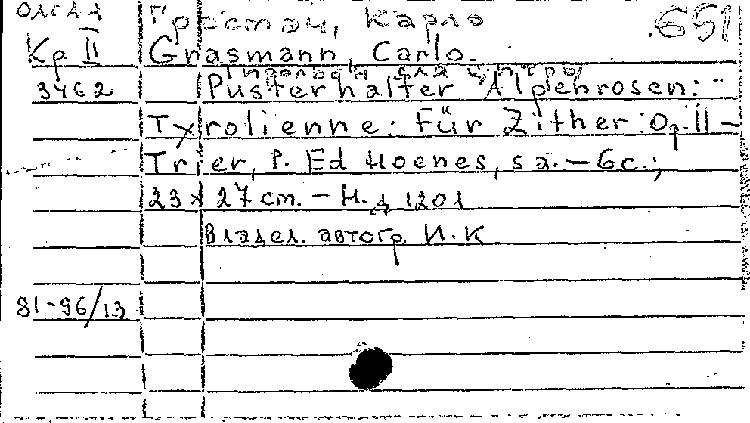 Грасман, Карло .651
Кр II Grasmann, Carlo.
для цитры
3462 Pusterhalter "Alpenrosen:"
Tyrolienne: Für Zither: Op. 11 –
Trier, P. Ed Hoenes, s a. – 6 c.;
23 x 27 cm. – Н. д 1201
Владел. автогр. И. К
81-96/13